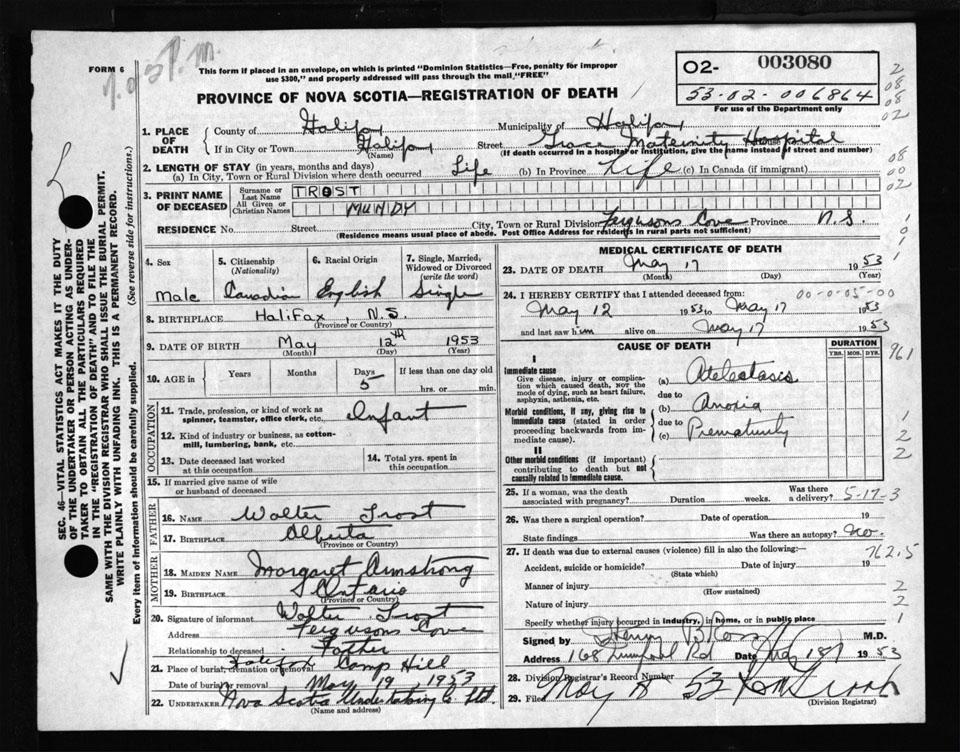 7.05 P.M.
FORM 6
This form if placed in an envelope, on which is printed "Dominion Statistics—Free, penalty for improper
use $300," and properly addressed will pass through the mail "FREE"
PROVINCE OF NOVA SCOTIA—REGISTRATION OF DEATH
02- 003080
53-02-006864
For use of the Department only
SEC. 46—VITAL STATISTICS ACT MAKES IT THE DUTY
OF THE UNDERTAKER OR PERSON ACTING AS UNDER-
TAKER TO OBTAIN ALL THE PARTICULARS REQUIRED
IN THE "REGISTRATION OF DEATH" AND TO FILE THE
SAME WITH THE DIVISION REGISTRAR WHO SHALL ISSUE THE BURIAL PERMIT.
WRITE PLAINLY WITH UNFADING INK. THIS IS A PERMANENT RECORD.
Every item of information should be carefully supplied. (See reverse side for instructions.)
1. PLACE OF DEATH
County of Halifax Municipality of Halifax
If in City or Town Halifax (Name) Street Grace Maternity Hospital
(If death occurred in a hospital or institution, give the name instead of street and number)
2. LENGTH OF STAY (in years, months and days)
(a) In City, Town or Rural Division where death occurred Life (b) In Province Life (c) In Canada (if immigrant)
3. PRINT NAME OF DECEASED
Surname or Last Name TROST
All Given or Christian Names MUNDY
RESIDENCE No. Street City, Town or Rural Division Fergusons Cove Province N.S.
(Residence means usual place of abode. Post Office Address for residents in rural parts not sufficient)
4. Sex
Male
5. Citizenship (Nationality)
Canadian
6. Racial Origin
English
7. Single, Married, Widowed or Divorced (write the word)
Single
8. BIRTHPLACE Halifax, N.S.
(Province or Country)
9. DATE OF BIRTH May 12th 1953
(Month) (Day) (Year)
10. AGE in Years Months Days 5 If less than one day old
hrs. or min.
OCCUPATION
11. Trade, profession, or kind of work as spinner, teamster, office clerk, etc. Infant
12. Kind of industry or business, as cotton-mill, lumbering, bank, etc.
13. Date deceased last worked at this occupation
14. Total yrs. spent in this occupation
15. If married give name of wife or husband of deceased
FATHER
16. NAME Walter Trost
17. BIRTHPLACE Alberta
(Province or Country)
MOTHER
18. MAIDEN NAME Margaret Armstrong
19. BIRTHPLACE Ontario
(Province or Country)
20. Signature of informant Walter Trost
Address Fergusons Cove
Relationship to deceased Father
21. Place of burial, cremation or removal Halifax Camp Hill
Date of burial or removal May 19, 1953
22. UNDERTAKER Nova Scotia Undertaking Co. Ltd.
(Name and address)
MEDICAL CERTIFICATE OF DEATH
23. DATE OF DEATH May 17 1953
(Month) (Day) (Year)
24. I HEREBY CERTIFY that I attended deceased from: 00-0-05-00
May 12 1953 to May 17 1953
and last saw him alive on May 17 1953
CAUSE OF DEATH
DURATION
YRS. MOS. DYS.
I
Immediate cause
Give disease, injury or complication which caused death, NOT the mode of dying, such as heart failure, asphyxia, asthenia, etc.
(a) Atelectasis
due to
Morbid conditions, if any, giving rise to immediate cause (stated in order proceeding backwards from immediate cause).
(b) Anoxia
due to
(c) Prematurity
II
Other morbid conditions (if important) contributing to death but not causally related to immediate cause.
25. If a woman, was the death associated with pregnancy? Duration weeks. Was there a delivery? 5-17-3
26. Was there a surgical operation? Date of operation 19
State findings Was there an autopsy? No.
27. If death was due to external causes (violence) fill in also the following:— 762.5
Accident, suicide or homicide? Date of injury 19
(State which)
Manner of injury
(How sustained)
Nature of injury
Specify whether injury occurred in industry, in home, or in public place
Signed by Henry B Ross M.D.
Address 168 Liverpool Rd Date May 18 1953
28. Division Registrar's Record Number
29. Filed May 18 53
(Division Registrar)
2
08
08
02
08
00
02
1
0
1
961
1
2
2
2
2
1